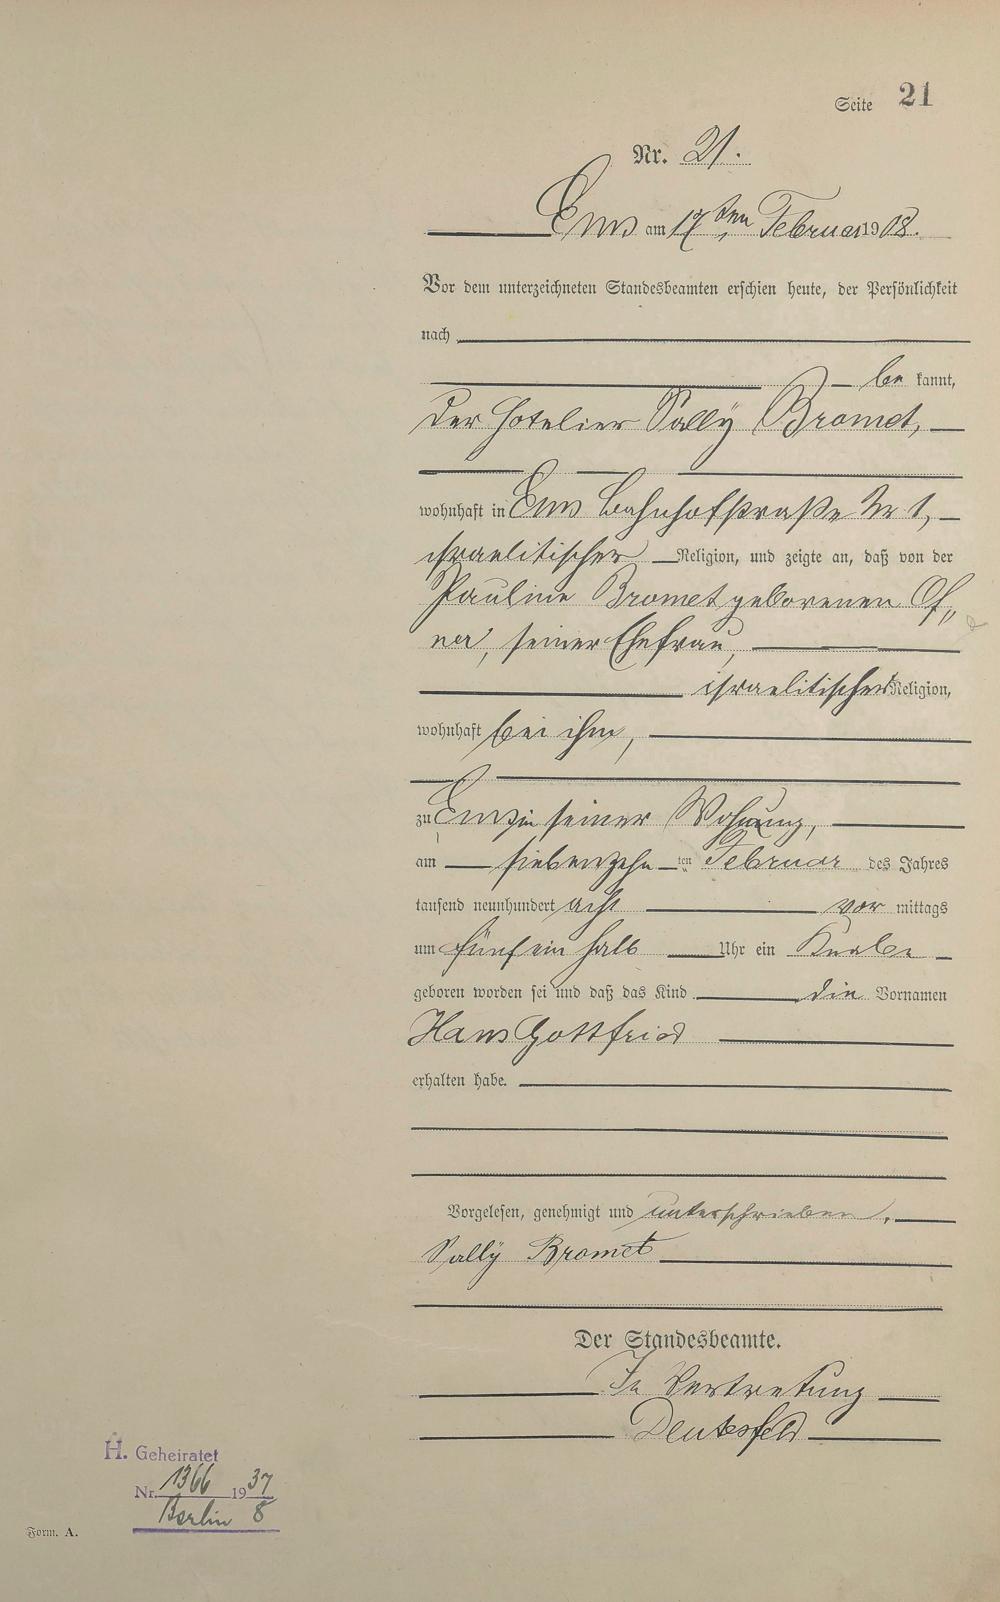 Seite 21
Nr. 21.
Ems am 17ten Februar 1908.
Vor dem unterzeichneten Standesbeamten erschien heute, der Persönlichkeit
nach
be kannt,
der Hotelier Sally Bromet,
wohnhaft in Ems Bahnhofstraße Nr 1,
israelitischer Religion, und zeigte an, daß von der
Pauline Bromet geborenen Of„
ner, seiner Ehefrau,
israelitischer Religion,
wohnhaft bei ihm,
zu Ems in seiner Wohnung,
am siebenzehn ten Februar des Jahres
tausend neunhundert acht vor mittags
um fünf ein halb Uhr ein Knabe
geboren worden sei und daß das Kind die Vornamen
Hans Gottfried
erhalten habe.
Vorgelesen, genehmigt und unterschrieben.
Sally Bromet
Der Standesbeamte.
In Vertretung
H. Geheiratet
Nr. 1366 1937
Berlin 8
Form. A.